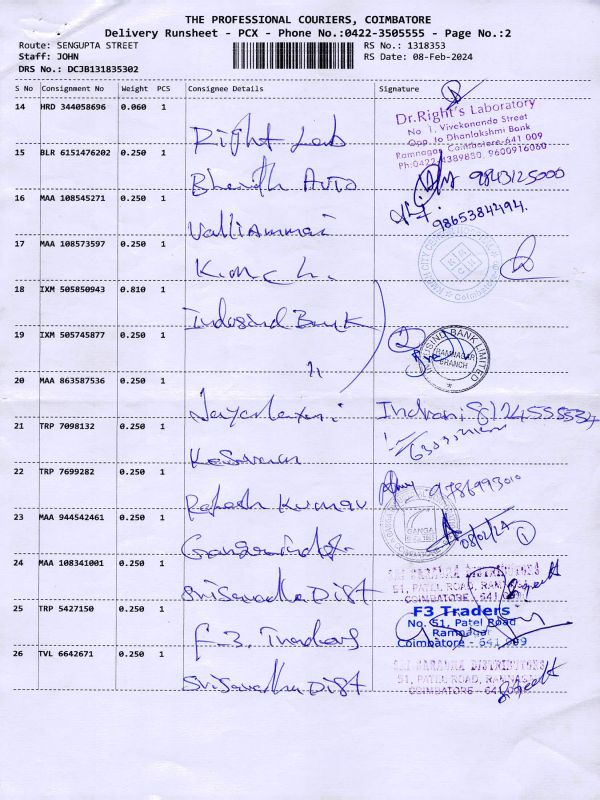 THE PROFESSIONAL COURIERS, COIMBATORE
Delivery Runsheet - PCX - Phone No.:0422-3505555 - Page No.:2
Route: SENGUPTA STREET
RS No.: 1318353
Staff: JOHN
RS Date: 08-Feb-2024
DRS No.: DCJB131835302
S No Consignment No Weight PCS Consignee Details Signature
14 HRD 344058696 0.060 1 Right Lab
Dr.Right's Laboratory
No. 1, Vivekananda Street
Opp. to Dhanlakshmi Bank
Ramnagar, Coimbatore-641 009
Ph:0422-4389880, 9600916060
15 BLR 6151476202 0.250 1 Bharath Auto 9843125000
16 MAA 108545271 0.250 1 Valliammai 9865384494.
17 MAA 108573597 0.250 1
18 IXM 505850943 0.810 1 Indusind Bank
19 IXM 505745877 0.250 1 "
INDUSIND BANK LIMITED
RAMNAGAR
BRANCH
20 MAA 863587536 0.250 1 Jayalaxmi Indrani
21 TRP 7098132 0.250 1 Kesavan
22 TRP 7699282 0.250 1 Rakesh Kumar 9786993010
23 MAA 944542461 0.250 1 GANGA 08/02/24 1
24 MAA 108341001 0.250 1 Sri Saradha Dist
SRI SARADHA DISTRIBUTORS
51, PATEL ROAD, RAMNAGAR
COIMBATORE - 641 009
25 TRP 5427150 0.250 1 F-3. Traders
F3 Traders
No. 51, Patel Road
Ramnagar
Coimbatore - 641 009
26 TVL 6642671 0.250 1 Sri Saradha Dist
SRI SARADHA DISTRIBUTORS
51, PATEL ROAD, RAMNAGAR
COIMBATORE - 641 009